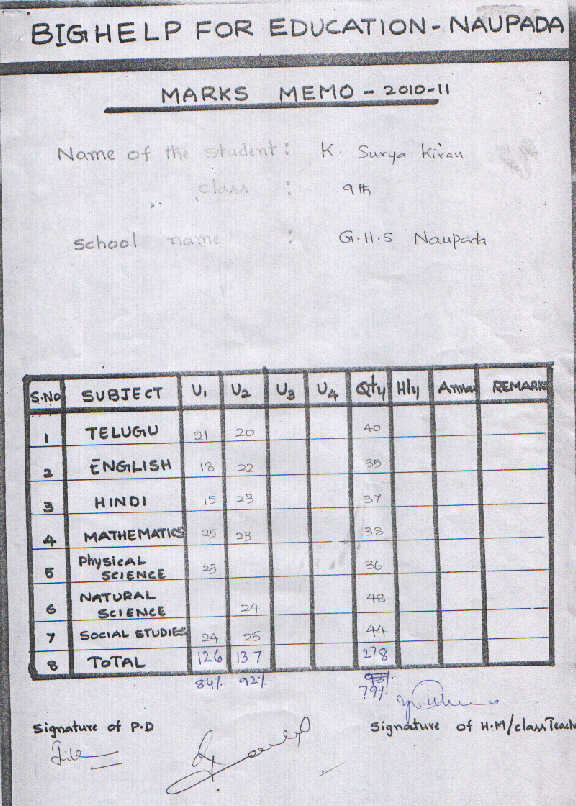 BIGHELP FOR EDUCATION - NAUPADA
MARKS MEMO - 2010-11
Name of the student : K. Surya Kiran
class : 9th
School name : G.H.S Naupada
S.No SUBJECT U1 U2 U3 U4 Qtly Hly Annu REMARK
1 TELUGU 21 20 40
2 ENGLISH 18 22 35
3 HINDI 15 23 37
4 MATHEMATICS 25 23 38
5 Physical SCIENCE 23 36
6 NATURAL SCIENCE 24 48
7 SOCIAL STUDIES 24 25 44
8 TOTAL 126 137 278
84% 92%
79%
Signature of P.D Signature of H.M/class Teach